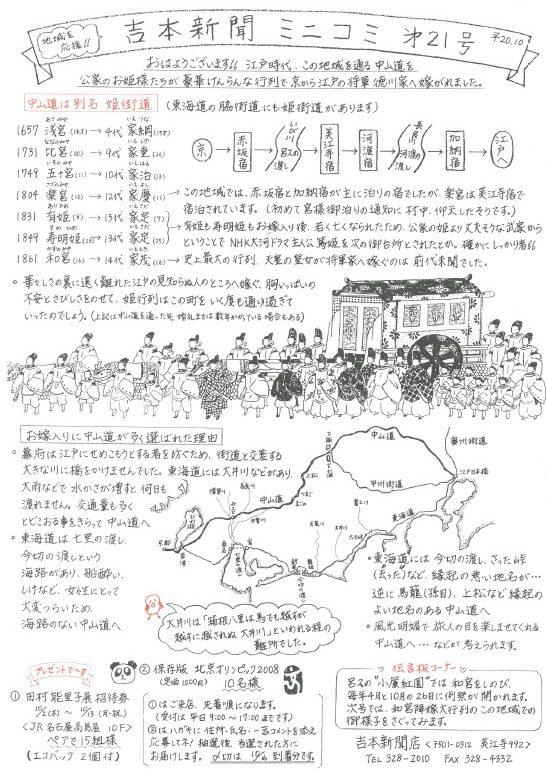 地域を
応援!!
吉本新聞 ミニコミ 第21号
平20.10
おはようございます!! 江戸時代、この地域を通る中山道を
公家のお姫様たちが豪華けんらんな行列で京から江戸の将軍徳川家へ嫁がれました。
中山道は別名 姫街道 (東海道の脇街道にも姫街道があります)
1657 浅宮(16才) → 4代 家綱(15才)
1731 比宮(20) → 9代 家重(20)
1749 五十宮(11) → 10代 家治(13)
1804 楽宮(10) → 12代 家慶(11)
1831 有姫(8) → 13代 家定(7)
1849 寿明姫(25) → 13代 家定(25)
1861 和宮(16) → 14代 家茂(16)
京 → 赤坂宿 → いび川 呂久の渡し → 美江寺宿 → 河渡宿 → 長良川 河渡の渡し → 加納宿 → 江戸へ
→ この地域では、赤坂宿と加納宿が主に泊りの宿でしたが、楽宮は美江寺宿で
宿泊されています。(初めて宮様御泊りの通知に村中、仰天したそうです。)
→ 有姫も寿明姫もお嫁入り後、若く亡くなられたため、公家の姫より丈夫そうな武家から
ということでNHK大河ドラマ主人公篤姫を次の御台所とされたとか。確かにしっかり者!!
→ 史上最大の行列、天皇の皇女が将軍家へ嫁ぐのは前代未聞でした。
○ 華々しさの裏に遠く離れた江戸の見知らぬ人のところへ嫁ぐ、胸いっぱいの
不安とさびしさをのせて、姫行列はこの町をいく度も通り過ぎて
いったのでしょう。(上記は中山道を通った年、婚礼までは数年かかっている場合もある)
お嫁入りに中山道が多く選ばれた理由
○ 幕府は江戸にせめこもうとする者を防ぐため、街道と交差する
大きな川に橋をかけませんでした。東海道には大井川などがあり、
大雨などで水かさが増すと何日も
渡れません。交通量も多く
とどこおる事をきらって中山道へ
○ 東海道は七里の渡し、
今切の渡しという
海路があり、船酔い、
しけなど、女性にとって
大変つらいため、
海路のない中山道へ
中山道
奥州街道
甲州街道
江戸日本橋
東海道
下諏訪
上松
つまご
まごめ
中山道
長良川
揖斐川
木曽川
天竜川
大井川
富士川
京都
草津
大井川は「箱根八里は馬でも越すが
越すに越されぬ大井川」といわれる程の
難所でした。
○ 東海道には今切の渡し、さった峠
(去った)など、縁起の悪い地名が…
逆に馬籠(孫目)、上松など縁起の
よい地名のある中山道へ
○ 風光明媚で旅人の目を楽しませてくれる
中山道へ … などが考えられます。
プレゼントで〜す
① 田村能里子展 招待券
10/2(木)〜10/13(月・祝)
〈JR名古屋高島屋 10F〉
ペアで15組様
(エコバッグ 2個付)
② 保存版 北京オリンピック2008
(定価1000円) 10名様
①はご来店、先着順になります。
(受付は平日9:00〜17:00までです)
②はハガキに住所・氏名・一言コメントを添え
応募して下さい 抽選後、当選された方に
お届けします。 到着分です。
伝言板コーナー
呂久の“小簾紅園”では和宮をしのび、
毎年4月と10月の26日に例祭が開かれます。
次号では、和宮降嫁大行列のこの地域での
御様子をさぐってみます。
吉本新聞店 〈〒501-0312 美江寺992〉
TEL 328-2010 FAX 328-4332